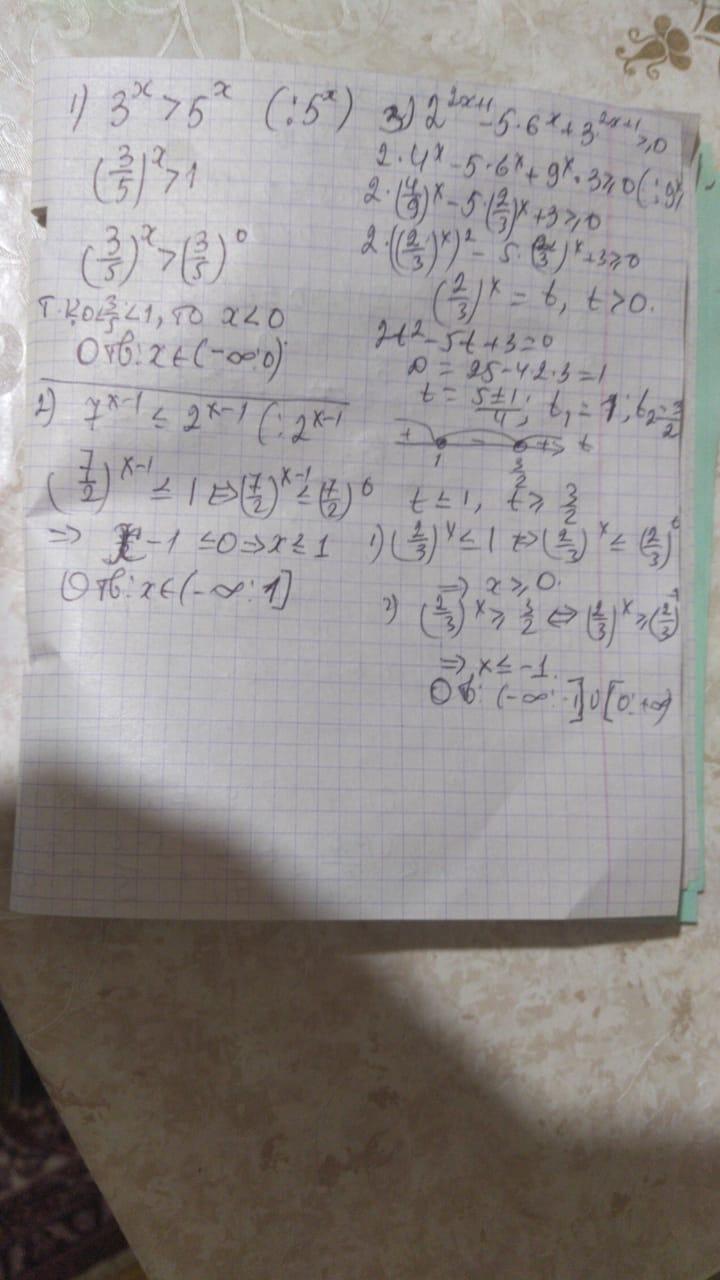 1) 3^x > 5^x (:5^x)
(3/5)^x > 1
(3/5)^x > (3/5)^0
т.к 0<3/5<1, то x<0
Отв: x∈(-∞;0)
2) 7^(x-1) ≤ 2^(x-1) (:2^(x-1)
(7/2)^(x-1) ≤ 1 ⇔ (7/2)^(x-1) ≤ (7/2)^0
⇒ x-1 ≤0 ⇒ x ≤ 1
Отв: x∈(-∞:1]
3) 2^(2x+1) - 5·6^x + 3^(2x+1) ≥ 0
2·4^x - 5·6^x + 9^x·3 ≥ 0 (:9^x)
2·(4/9)^x - 5·(2/3)^x + 3 ≥ 0
2·((2/3)^x)^2 - 5·(2/3)^x + 3 ≥ 0
(2/3)^x = t, t>0.
2t^2 - 5t + 3 = 0
D = 25-4·2·3 = 1
t = (5±1)/4; t₁ = 1; t₂ = 3/2
+ - + t
1 3/2
t ≤ 1, t ≥ 3/2
1) (2/3)^x ≤ 1 ⇔ (2/3)^x ≤ (2/3)^0
⇒ x ≥ 0.
2) (2/3)^x ≥ 3/2 ⇔ (2/3)^x ≥ (2/3)^-1
⇒ x ≤ -1.
Отв: (-∞: -1]∪[0:+∞)